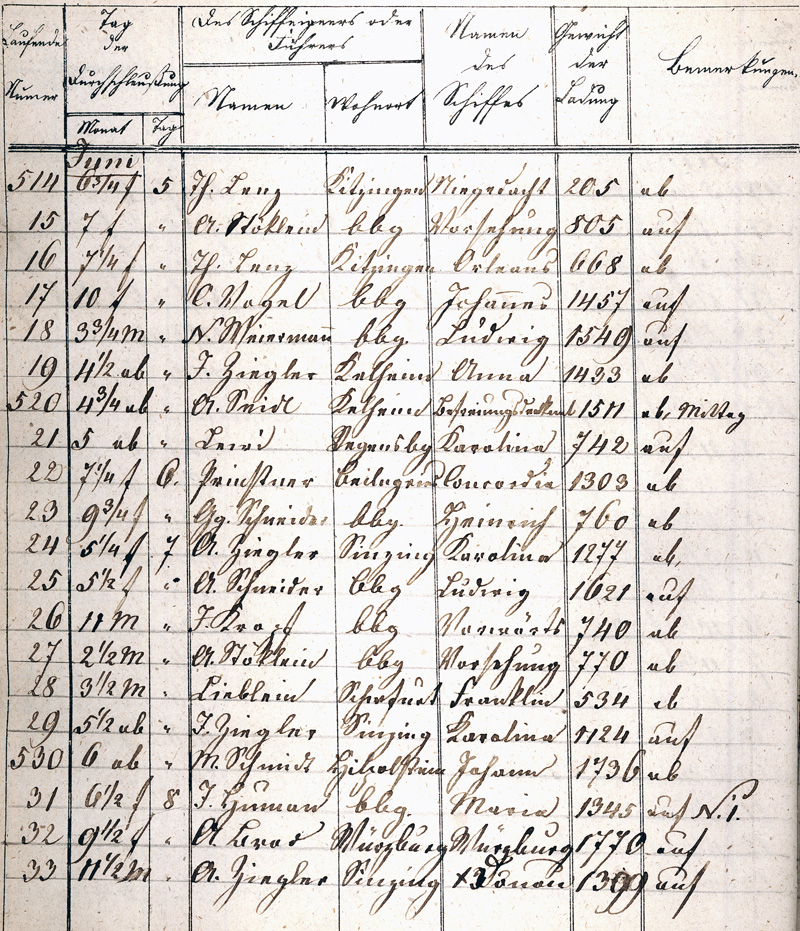 Laufende Numer | Tag der Durchschleußung | Des Schiffeigners oder Führers | Namen des Schiffes | Gewicht der Ladung | Bemerkungen.
Monat | Tag | Namen | Wohnort
Juni
514 6 3/4 f 5 Th. Lenz Kitzingen Niegedacht 205 ab
15 7 f " A. Stöklein bbg Vorsehung 805 auf
16 7 1/4 f " Th. Lenz Kitzingen Orleans 668 ab
17 10 f " C. Vogel bbg Johannes 1457 auf
18 3 3/4 M " N. Meiermann bbg. Ludwig 1549 auf
19 4 1/2 ab " J. Ziegler Kelheim Anna 1433 ab
520 4 3/4 ab " A. Seidl Kelheim 1511 ab, Mittag
21 5 ab " Regensbg Karolina 742 auf
22 7 1/4 f 6. Beilngries Concordia 1303 ab
23 9 3/4 f " Gg. Schneider bbg. Heinrich 760 ab
24 5 1/4 f 7 A. Ziegler Sinzing Karolina 1277 ab,
25 5 1/2 f " A. Schneider bbg Ludwig 1621 auf
26 11 M " J. Kropf bbg Vorwärts 740 ab
27 2 1/2 M " A. Stöklein bbg Vorsehung 770 ab
28 3 1/2 M " Lieblein Schwfurt Franklin 534 ab
29 5 1/2 ab " J. Ziegler Sinzing Karolina 1124 auf
530 6 ab " M. Schmidt Hilpolstein Johann 1736 ab
31 6 1/2 f 8 J. Human bbg. Maria 1345 auf N. 1.
32 9 1/2 f " A Würzburg Würzburg 1770 auf
33 11 1/2 M " A. Ziegler Sinzing Donau auf